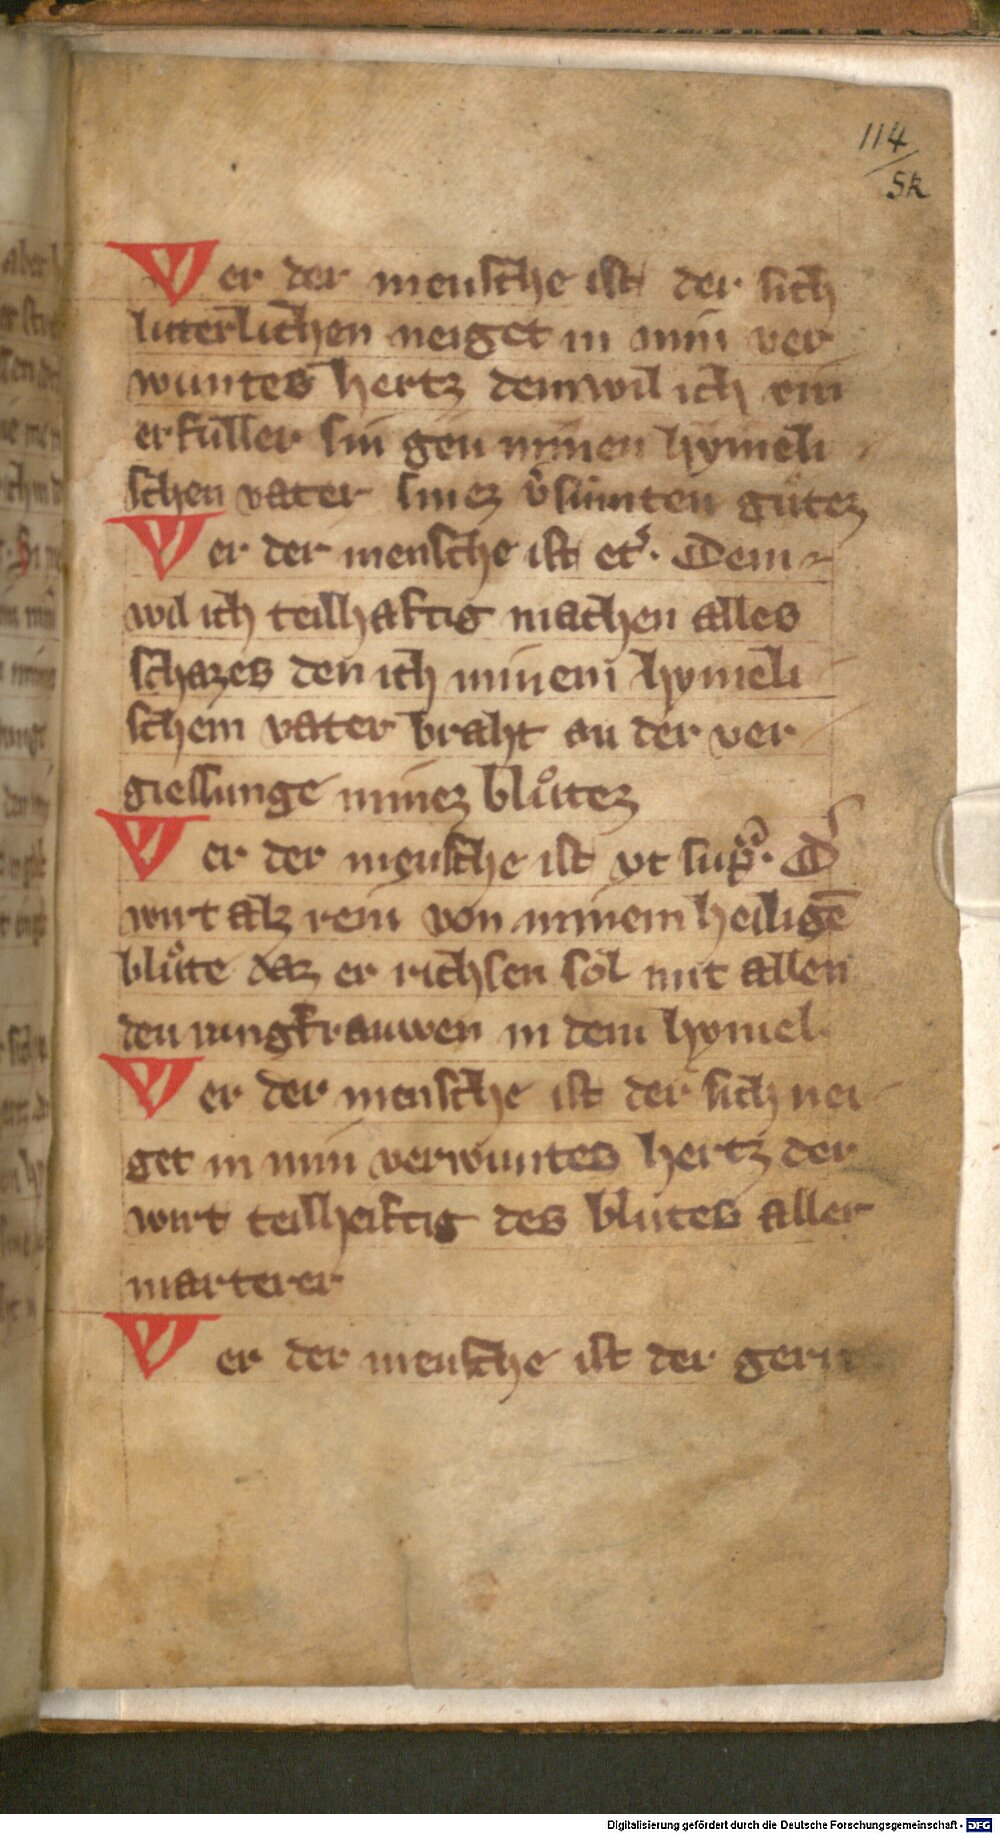 114
5k
Ver der mensche ist der sich
luterlichen neiget in min ver
wuntes hertz dem wil ich ein
erfuller sin gen minen hymeli
schen vater sinez v̓sumten gutez
Ver der mensche ist etc̓. Dem
wil ich teilhaftig machen alles
schazes den ich minem hymeli
schem vater braht an der ver
giessunge minez bluͦtez
Ver der mensche ist vt supᵃ. D̓
wirt alz rein von minem heiligē
bluͦte daz er richsen sol mit allen
den iungkrauwen in dem hymel.
Ver der mensche ist der sich nei
get in min verwuntes hertz der
wirt teilheiftig des blutes aller
marterer
Ver der mensche ist der gern
Digitalisierung gefördert durch die Deutsche Forschungsgemeinschaft - DFG